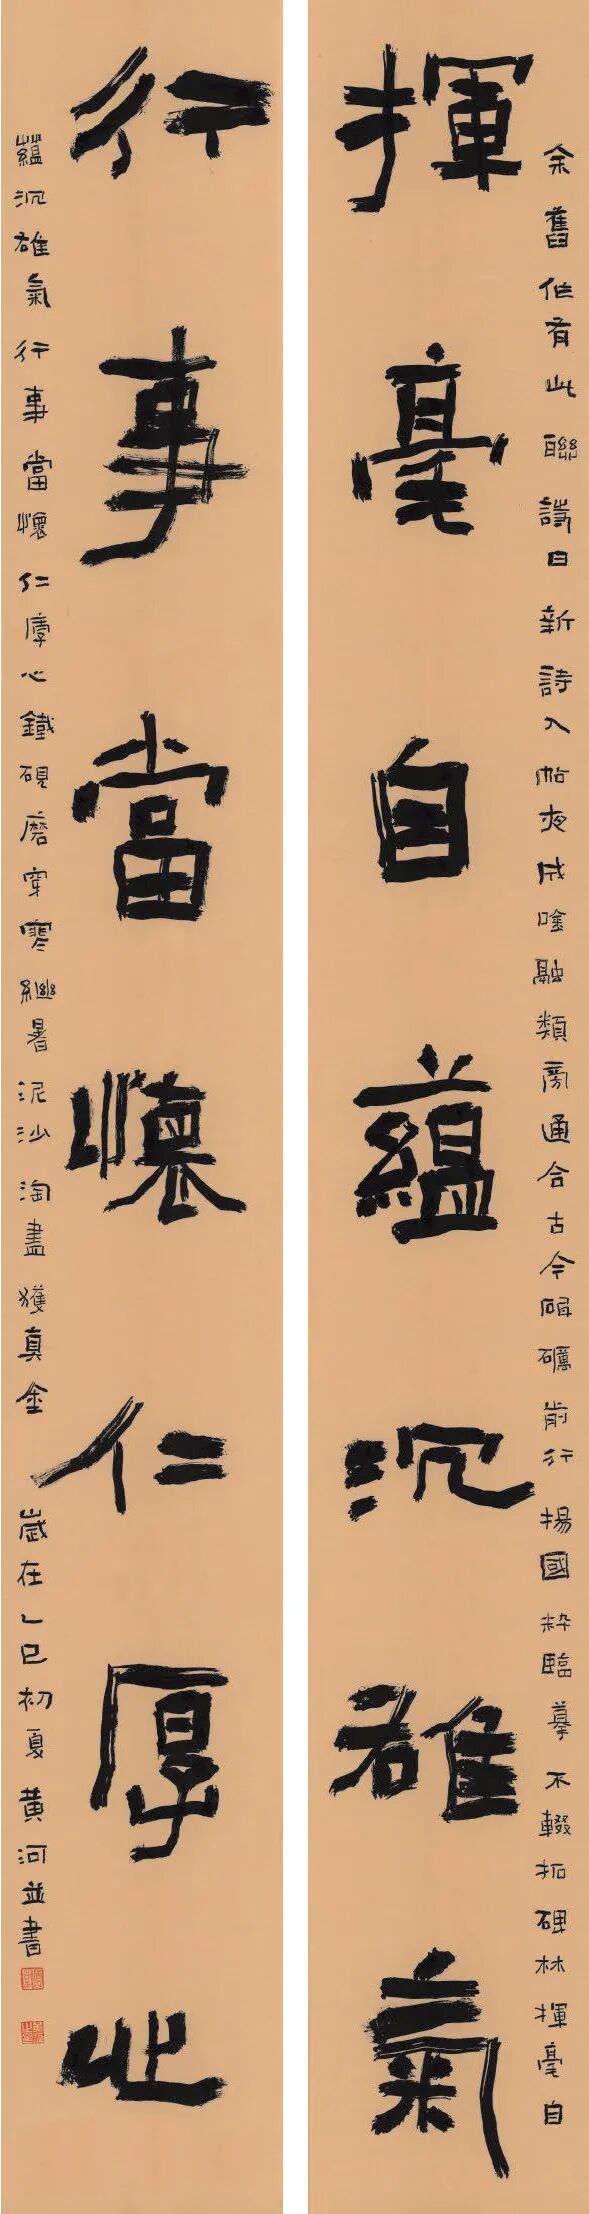 余舊作有此聯曰新詩入帖夜成吟融類旁通合古今砥礪前行揚國粹臨摹不輟拓碑林揮毫自
揮毫自蘊沉雄氣
行事當懷仁厚心
蘊沉雄氣行事當懷仁厚心鐵硯磨穿寒繼暑泥沙淘盡獲真金歲在乙巳初夏黃河並書